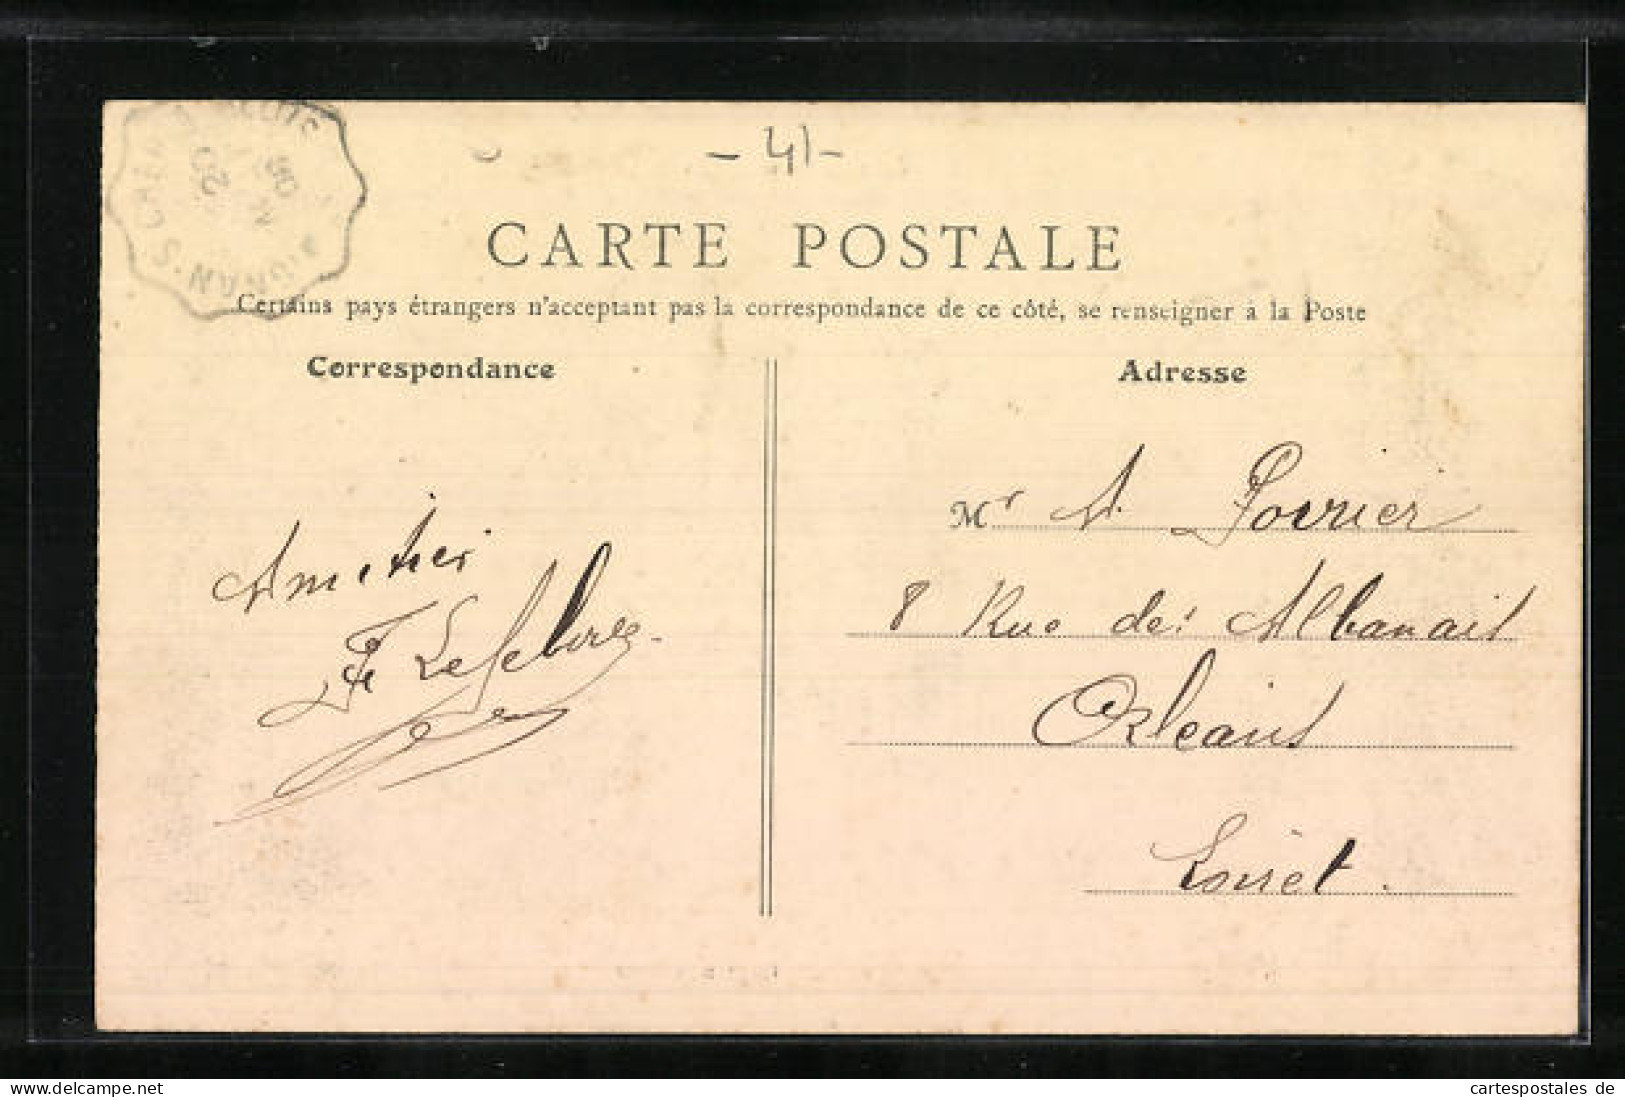 - 41 -
CARTE POSTALE
Certains pays étrangers n'acceptant pas la correspondance de ce côté, se renseigner à la Poste
Correspondance
Amitiés
F Lefebvre
Adresse
Mr A. Poirier
8 Rue des Albanais
Orléans
Loiret.
cartespostales de